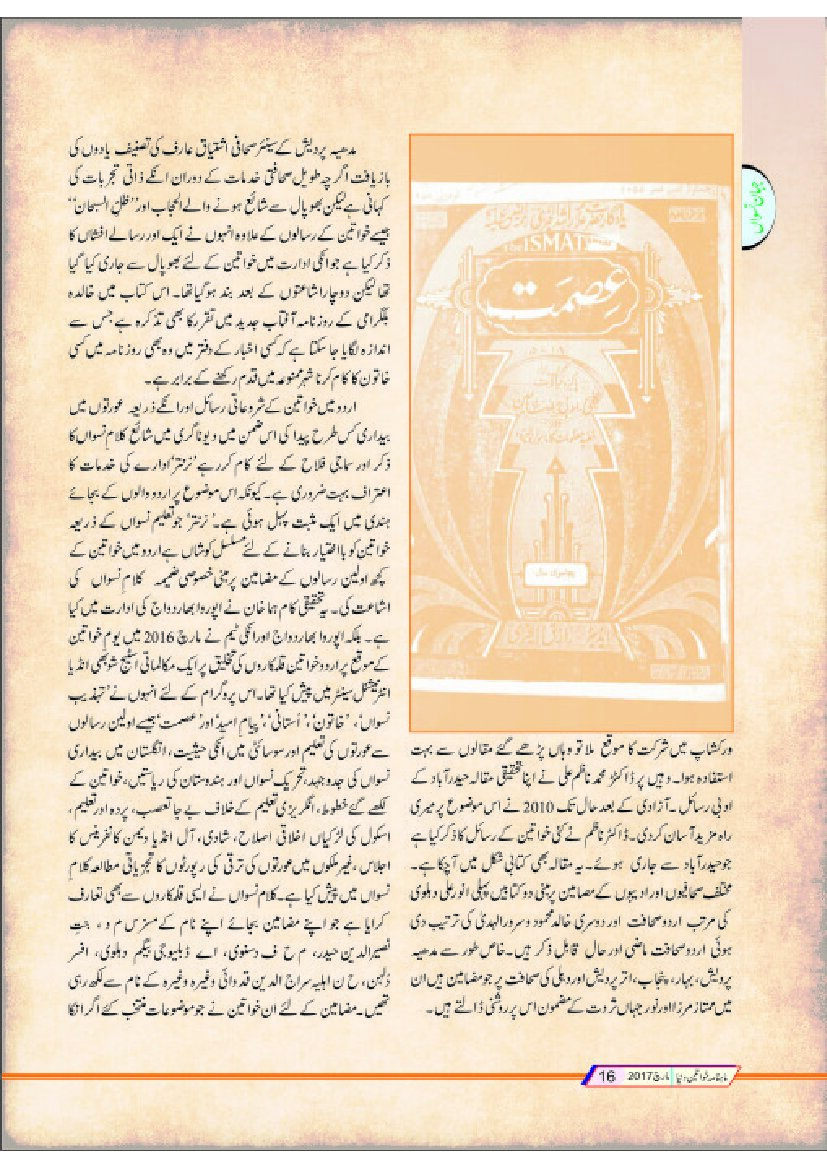 جہان نسواں
The ISMAT
عصمت
ورکشاپ میں شرکت کا موقع ملا تو وہاں پڑھے گئے مقالوں سے بہت
استفادہ ہوا۔ وہیں پر ڈاکٹر محمد ناظم علی نے اپنا تحقیقی مقالہ حیدرآباد کے
ادبی رسائل۔ آزادی کے بعد حال تک 2010 نے اس موضوع پر میری
راہ مزید آسان کردی۔ ڈاکٹر ناظم نے کئی خواتین کے رسائل کا ذکر کیا ہے
جو حیدرآباد سے جاری ہوئے۔ یہ مقالہ بھی کتابی شکل میں آچکا ہے۔
مختلف صحافیوں اور ادیبوں کے مضامین پر مبنی دو کتابیں پہلی انور علی دہلوی
کی مرتب اردو صحافت اور دوسری خالد محمود و سرور الہدیٰ کی ترتیب دی
ہوئی اردو صحافت ماضی اور حال قابل ذکر ہیں۔ خاص طور سے مدھیہ
پردیش، بہار، پنجاب، اتر پردیش اور دہلی کی صحافت پر جو مضامین ہیں ان
میں ممتاز مرزا اور نور جہاں ثروت کے مضمون اس پر روشنی ڈالتے ہیں۔
مدھیہ پردیش کے سینئر صحافی اشتیاق عارف کی تصنیف یادوں کی
بازیافت اگرچہ طویل صحافتی خدمات کے دوران انکے ذاتی تجربات کی
کہانی ہے لیکن بھوپال سے شائع ہونے والے الحجاب اور ’’ظل السبحان‘‘
جیسے خواتین کے رسالوں کے علاوہ انہوں نے ایک اور رسالے افشاں کا
ذکر کیا ہے جو انکی ادارت میں خواتین کے لئے بھوپال سے جاری کیا گیا
تھا لیکن دو چار اشاعتوں کے بعد بند ہوگیا تھا۔ اس کتاب میں خالدہ
بلگرامی کے روزنامہ آفتاب جدید میں تقرر کا بھی تذکرہ ہے جس سے
اندازہ لگایا جاسکتا ہے کہ کسی اخبار کے دفتر میں وہ بھی روزنامہ میں کسی
خاتون کا کام کرنا شہر ممنوعہ میں قدم رکھنے کے برابر ہے۔
اردو میں خواتین کے شروعاتی رسائل اور انکے ذریعہ عورتوں میں
بیداری کس طرح پیدا کی اس ضمن میں دیوناگری میں شائع کلام نسواں کا
ذکر اور سماجی فلاح کے لئے کام کررہے ’نرنتر‘ ادارے کی خدمات کا
اعتراف بہت ضروری ہے۔ کیونکہ اس موضوع پر اردو والوں کے بجائے
ہندی میں ایک مثبت پہل ہوئی ہے۔ ’نرنتر‘ جو تعلیم نسواں کے ذریعہ
خواتین کو بااختیار بنانے کے لئے مسلسل کوشاں ہے اردو میں خواتین کے
کچھ اولین رسالوں کے مضامین پر مبنی خصوصی ضمیمہ کلام نسواں کی
اشاعت کی۔ یہ تحقیقی کام ہما خان نے اپوروا بھاردواج کی ادارت میں کیا
ہے۔ بلکہ اپوروا بھاردواج اور انکی ٹیم نے مارچ 2016 میں یوم خواتین
کے موقع پر اردو خواتین قلمکاروں کی تخلیق پر ایک مکالماتی اسٹیج شو بھی انڈیا
انٹرنیشنل سینٹر میں پیش کیا تھا۔ اس پروگرام کے لئے انہوں نے ’تہذیب
نسواں‘، ’خاتون‘، ’استانی‘، ’پیام امید‘ اور ’عصمت‘ جیسے اولین رسالوں
سے عورتوں کی تعلیم اور سوسائٹی میں انکی حیثیت، انگلستان میں بیداری
نسواں کی جدوجہد، تحریک نسواں اور ہندوستان کی ریاستیں، خواتین کے
لکھے گئے خطوط، انگریزی تعلیم کے خلاف بے جا تعصب، پردہ اور تعلیم،
اسکول کی لڑکیاں اخلاقی اصلاح، شادی، آل انڈیا ویمن کانفرنس کا
اجلاس، غیر ملکوں میں عورتوں کی ترقی کی رپورٹوں کا تجزیاتی مطالعہ کلام
نسواں میں پیش کیا ہے۔ کلام نسواں نے ایسی قلمکاروں سے بھی تعارف
کرایا ہے جو اپنے مضامین بجائے اپنے نام کے مسز س م د، بنت
نصیرالدین حیدر، م ح ف دسنوی، اے ڈبلیو جی بیگم دہلوی، افسر
دلہن، ح ن اہلیہ سراج الدین قدوائی وغیرہ وغیرہ کے نام سے لکھ رہی
تھیں۔ مضامین کے لئے ان خواتین نے جو موضوعات منتخب کئے اگر انکا
ماہنامہ خواتین دنیا مارچ 2017 16